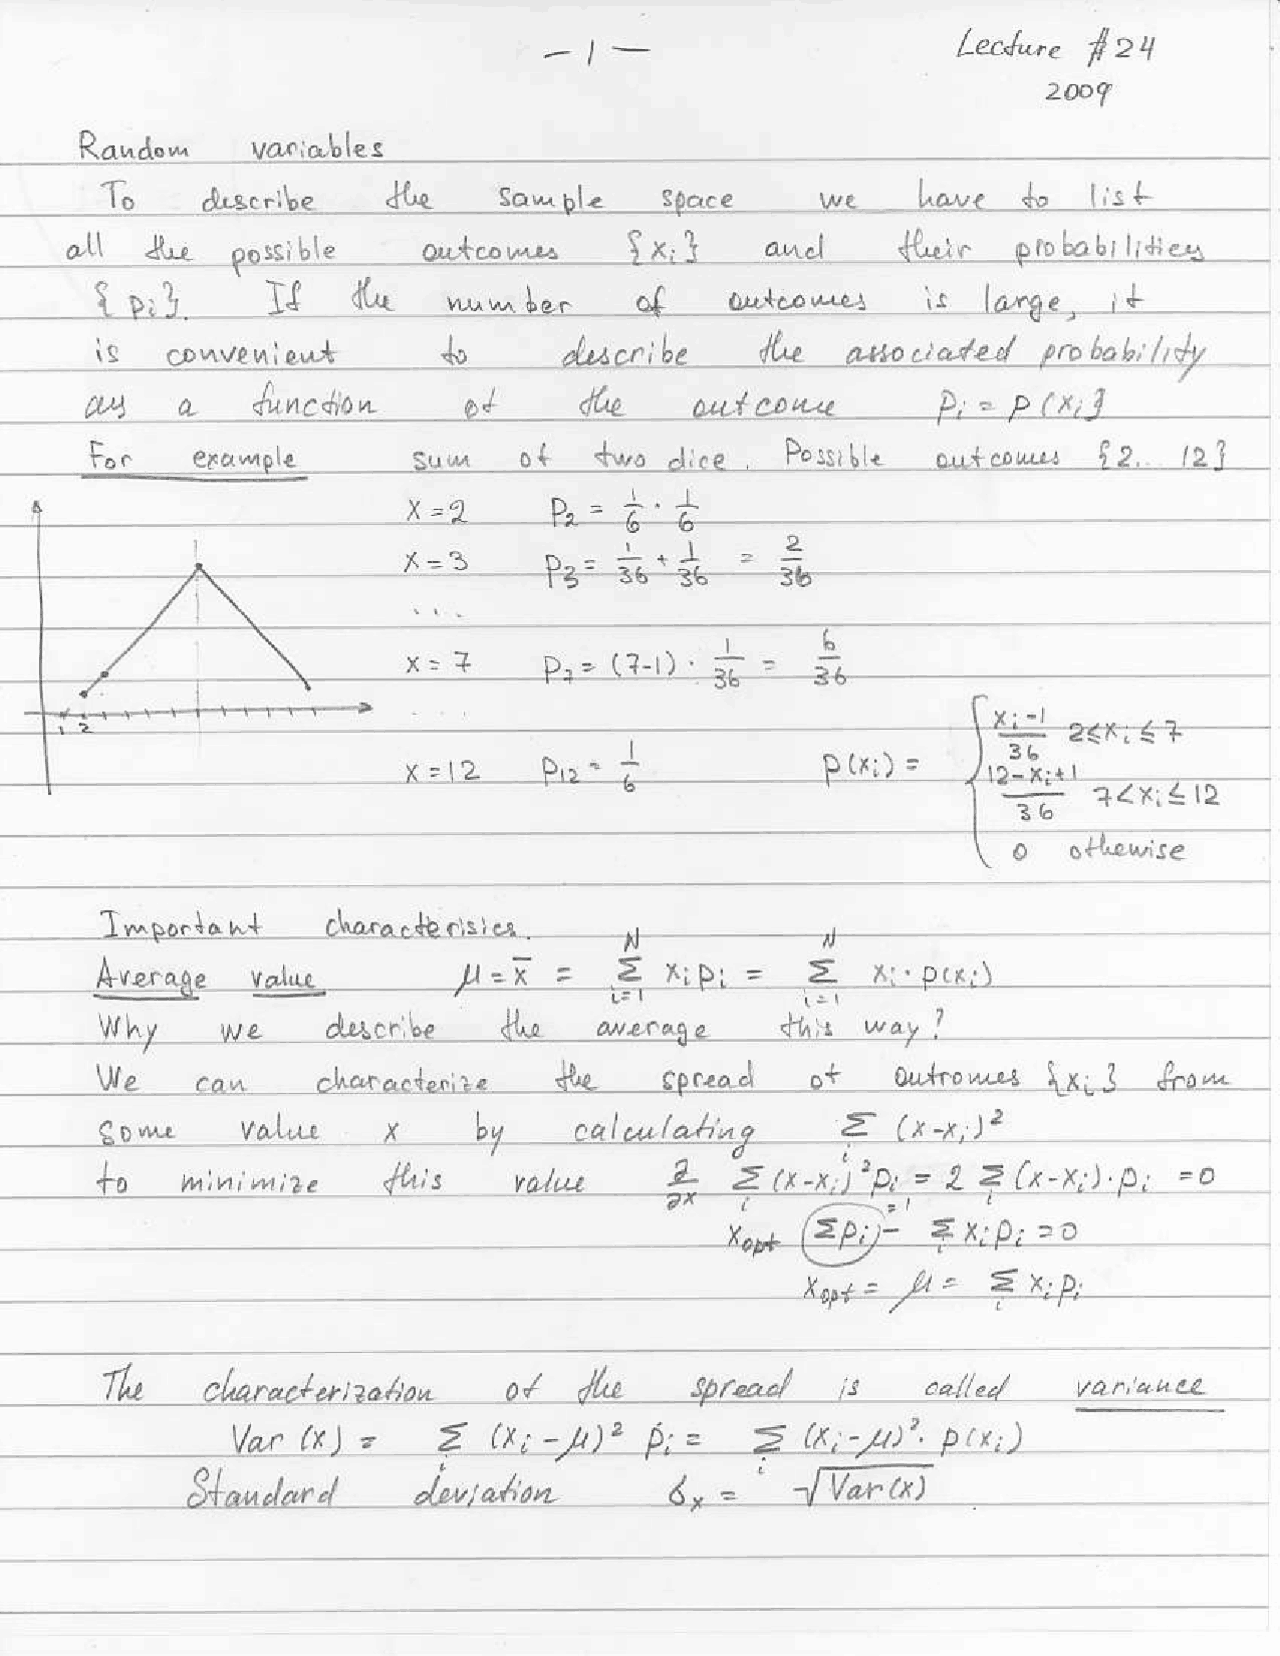 -1-
Lecture #24
2009
Random variables
To describe the sample space we have to list
all the possible outcomes {xi} and their probabilities
{pi}. If the number of outcomes is large, it
is convenient to describe the associated probability
as a function of the outcome pi = p(xi}
For example sum of two dice. Possible outcomes {2... 12}
x = 2 P2 = 1/6 · 1/6
x = 3 P3 = 1/36 + 1/36 = 2/36
....
x = 7 P7 = (7-1) · 1/36 = 6/36
....
1 2
x = 12 P12 = 1/6
p(xi) = { (xi-1)/36 2≤xi≤7
(12-xi+1)/36 7<xi≤12
0 othewise
Important characterisics.
Average value μ = x̄ = Σ_{i=1}^{N} xi pi = Σ_{i=1}^{N} xi · p(xi)
Why we describe the average this way?
We can characterize the spread of outromes {xi} from
some value x by calculating Σ_i (x-xi)²
to minimize this value ∂/∂x Σ_i (x-xi)² pi = 2 Σ_i (x-xi)·pi = 0
xopt (Σpi)=1 - Σ_i xi pi = 0
xopt = μ = Σ_i xi pi
The characterization of the spread is called variance
Var (x) = Σ_i (xi - μ)² pi = Σ_i (xi-μ)² · p(xi)
Standard deviation σx = √Var(x)